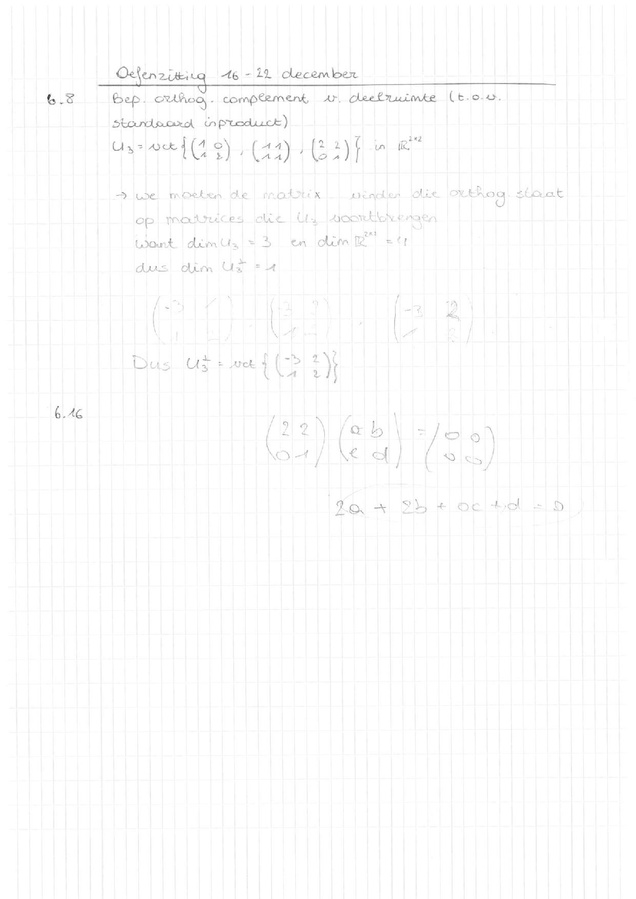 Oefenzitting 16-22 december
6.8 Bep. orthog. complement v. deelruimte (t.o.v.
standaard inproduct)
U₃ = vct {(1 0; 1 2), (1 1; 1 1), (2 2; 0 1)} in ℝ²ˣ²
→ we moeten de matrix vinden die orthog staat
op matrices die U₃ voortbrengen
want dim U₃ = 3 en dim ℝ²ˣ² = 4
dus dim U₃⊥ = 1
(-3 2
Dus U₃⊥ = vct {(-3 2; 1 2)}
6.16
(2 2; 0 1) (a b; c d) = (0 0; 0 0)
2a + 2b + 0c + d = 0